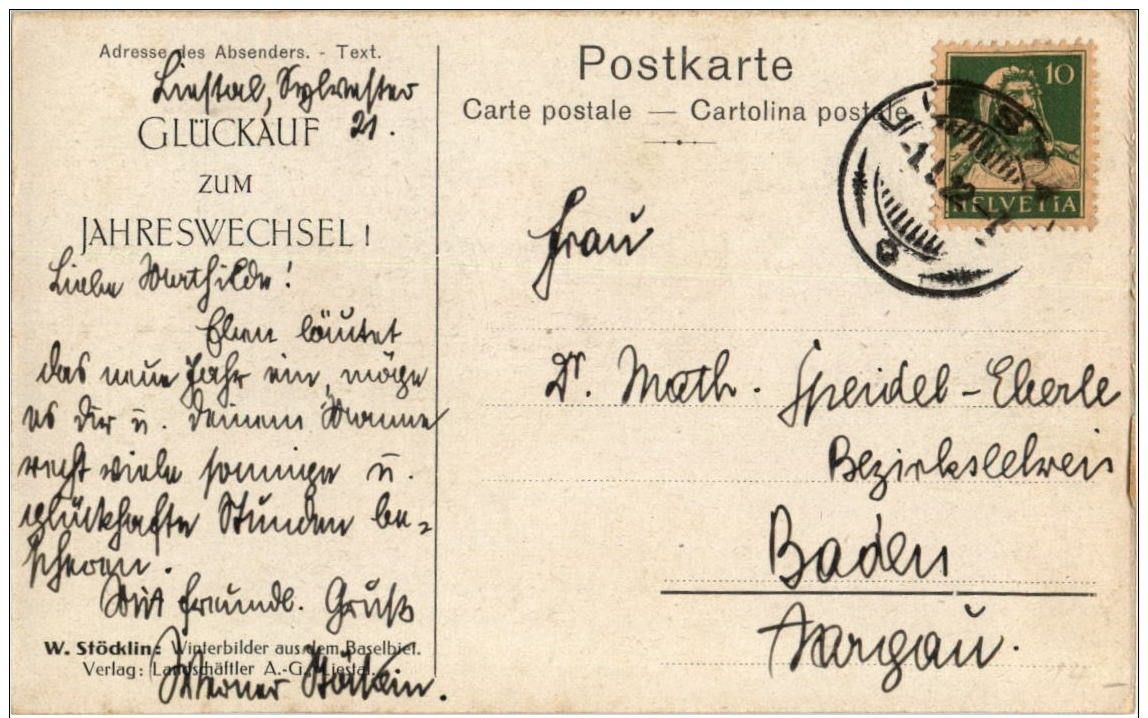 Adresse des Absenders. - Text.
Liestal, Sylvester
21.
GLÜCKAUF
ZUM
JAHRESWECHSEL!
Liebe Mathilde!
Eben läutet
das neue Jahr ein, möge
es dir u. deinem Manne
recht viele sonnige u.
glückhafte Stunden be=
scheren.
Mit freundl. Gruß
W. Stöcklin: Winterbilder aus dem Baselbiet.
Verlag: Landschäftler A.-G., Liestal.
Werner Stöcklin.
Postkarte
Carte postale — Cartolina postale
10
HELVETIA
Frau
Dr. Math. Speidel-Eberle
Bezirkslehrerin
Baden
Aargau.